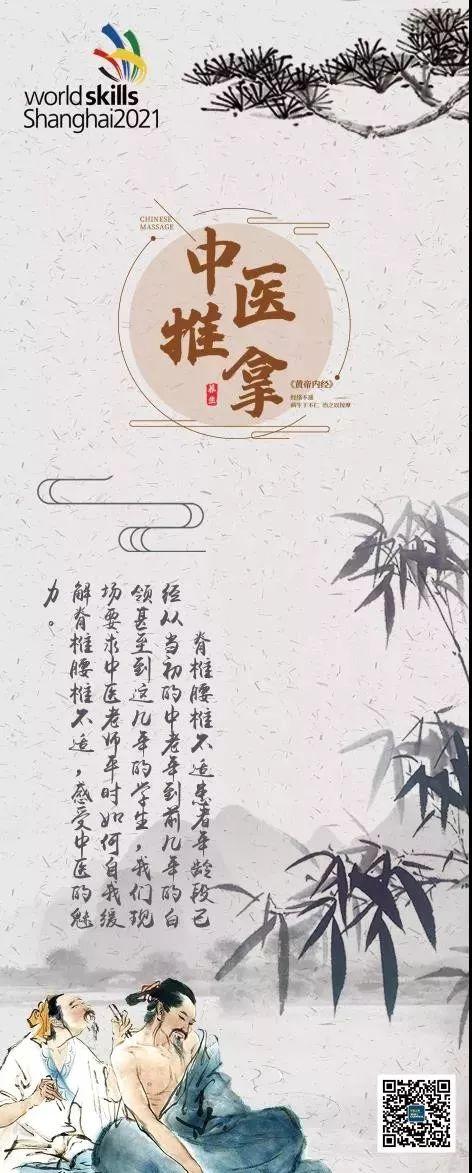 worldskills
Shanghai2021
CHINESE
MASSAGE
中医
推拿
养生
《黄帝内经》
经络不通
病生于不仁 治之以按摩
脊椎腰椎不适患者年龄段已
经从当初的中老年到前几年的白
领甚至到这几年的学生，我们现
场要求中医老师平时如何自我缓
解脊椎腰椎不适，感受中医的魅
力。